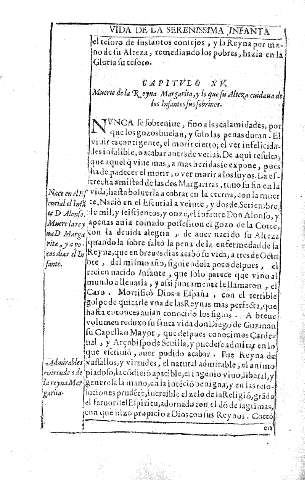 VIDA DE LA SERENISSIMA INFANTA
el tesoro de sus santos consejos, y la Reyna por ma-
no de su Alteza, remediando los pobres, hazia en la
Gloria su tesoro.
CAPITVLO XV.
Muerte de la Reyna Margarita, y lo que su Alteza cuidaua de
los Infantes sus sobrinos.
NVNCA se sobreniene, sino a las calamidades, por
que los gozos huelan, y solo las penas duran. El
viuir es contigente, el morir cierto; el ver infelicida-
des infalible, o acabar antes de verlas. De aqui resulta,
que aquel q viue mas, a mas
ha de padecer el morir, o ver morir a los suyos. La es-
trecha amistad de las dos Margaritas, tuuo su fin en la
vida, hasta boluerla a cobrar en la eterna, con la muer-
te. Naciò en el Escurial a veinte, y dos de Setiembre,
de mil, y seiscientos, y onze, el infante Don Alonso, y
apenas auia tomado possession el gozo de la Corte,
con la deuida alegria, de auer nacido su Alteza
quando la sobre saltò la pena de la enfermedad de la
Reyna, que en breues dias acabò su vida, a tres de Octu-
bre, del mismo año, siguiendola poco despues, el
recien nacido Infante, que solo parece que vino al
mundo a lleuarla, y assi justamente le llamaron, el
Caro. Mortificò Dios a España, con el terrible
golpe de quitarle vna de las Reynas mas perfecta, que
hasta entonces auian conocido los siglos. A breue
volumen reduxo su santa vida don Diego de Guzman
su Capellan Mayor, que despues conocimos Carde-
nal, y Arçobispo de Seuilla, y puedese admirar en lo
que escriuiò, auer podido acabar. Fue Reyna de
vassallos, y virtudes, el natural admirable, el animo
piadoso, la condicion apacible, el ingenio viuo, liberal, y
generosa la mano, en la intencion benigna, y en las reso-
luciones prudente, increible el zelo de la Religiõ, grãde
el feruor del Espiritu, adornado con el dõ de lagrimas,
con que hizo propicio a Dios con sus Reynos.
en
Nace en el Es-
curial el Infã-
te D. Alonso,
Muere la re-
na D. Marga-
rita, y a po-
cos dias el In-
fante.
Admirables
virtudes de
la reyna Mar
garita.